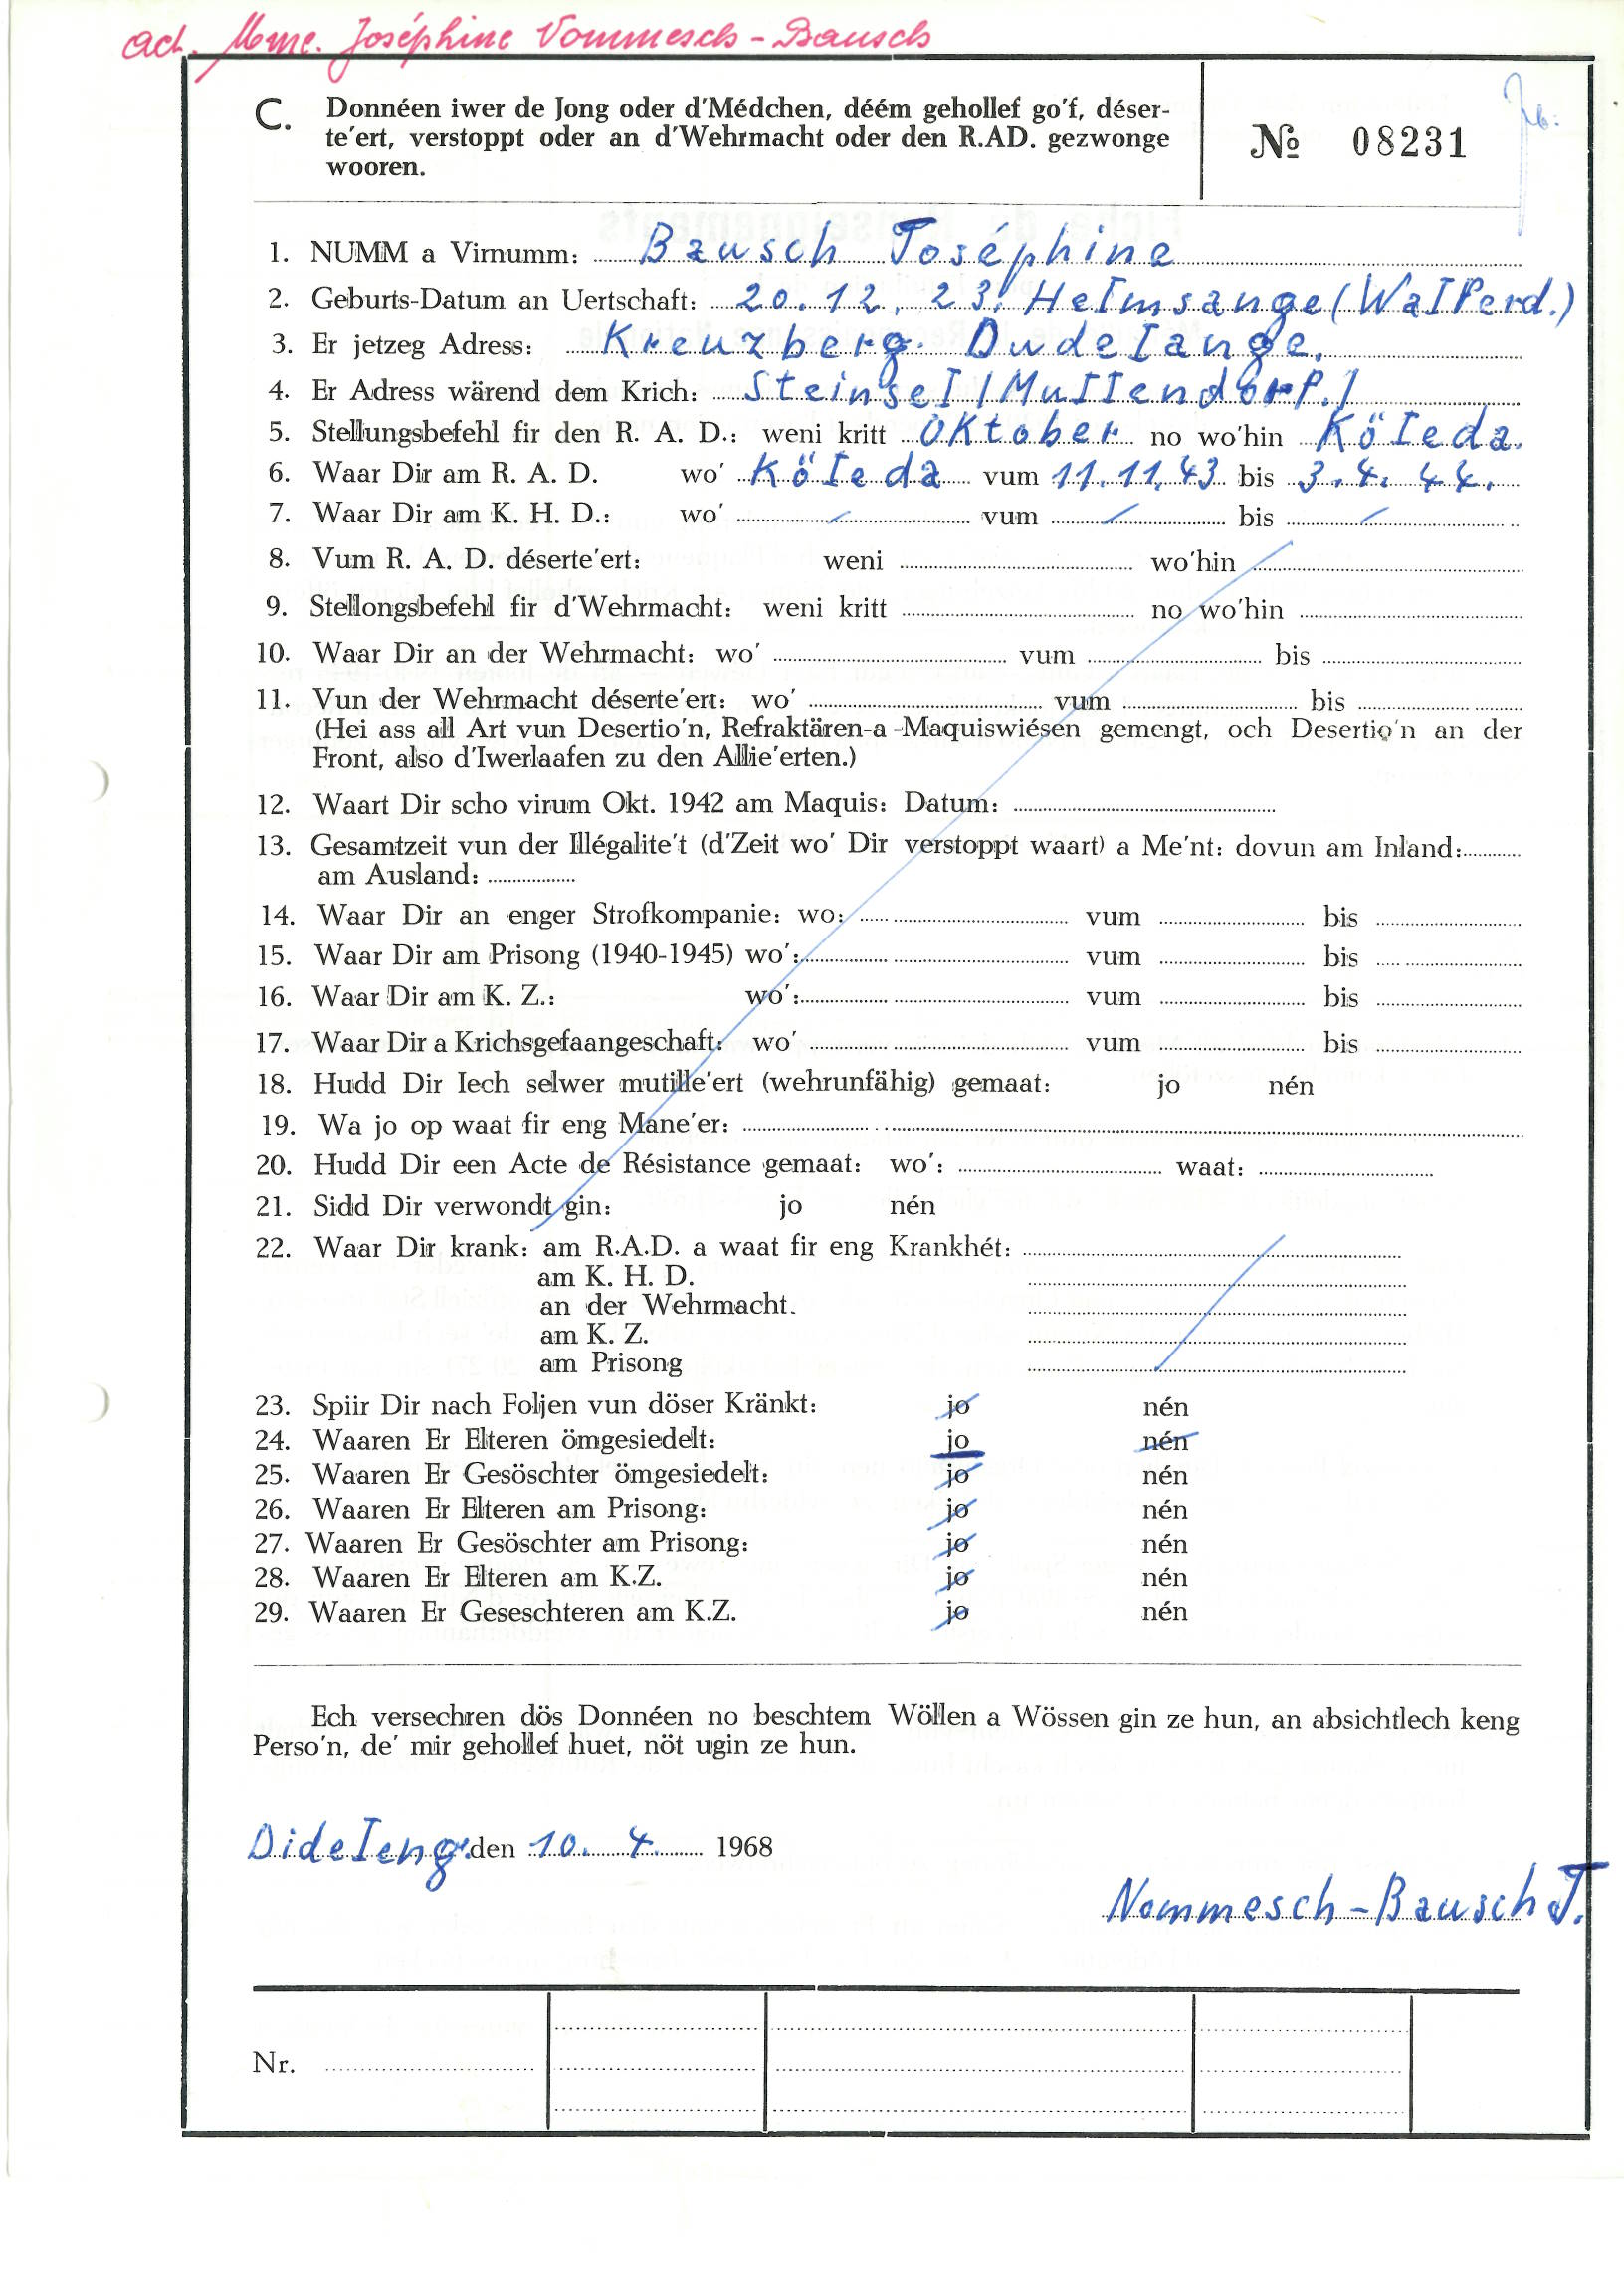 act. Mme. Joséphine Vommesch-Bausch
C. Donnéen iwer de Jong oder d'Médchen, déém gehollef go'f, déser-
te'ert, verstoppt oder an d'Wehrmacht oder den R.AD. gezwonge
wooren.
№ 08231
1. NUMM a Virnumm: Bausch Joséphine
2. Geburts-Datum an Uertschaft: 20.12.23. Helmsange (Walferd.)
3. Er jetzeg Adress: Kreuzberg. Dudelange.
4. Er Adress wärend dem Krich: Steinsel / Mullendorf. /
5. Stellungsbefehl fir den R. A. D.: weni kritt Oktober no wo'hin Kölleda.
6. Waar Dir am R. A. D. wo' Köleda vum 11.11.43 bis 3.4.44.
7. Waar Dir am K. H. D.: wo' / vum / bis /
8. Vum R. A. D. déserte'ert: weni wo'hin
9. Stellongsbefehl fir d'Wehrmacht: weni kritt no wo'hin
10. Waar Dir an der Wehrmacht: wo' vum bis
11. Vun der Wehrmacht déserte'ert: wo' vum bis
(Hei ass all Art vun Desertio'n, Refraktären-a-Maquiswiésen gemengt, och Desertio'n an der
Front, also d'Iwerlaafen zu den Allie'erten.)
12. Waart Dir scho virum Okt. 1942 am Maquis: Datum:
13. Gesamtzeit vun der Illégalite't (d'Zeit wo' Dir verstoppt waart) a Me'nt: dovun am Inland:
am Ausland:
14. Waar Dir an enger Strofkompanie: wo: vum bis
15. Waar Dir am Prisong (1940-1945) wo': vum bis
16. Waar Dir am K. Z.: wo': vum bis
17. Waar Dir a Krichsgefaangeschaft: wo' vum bis
18. Hudd Dir Iech selwer mutille'ert (wehrunfähig) gemaat: jo nén
19. Wa jo op waat fir eng Mane'er:
20. Hudd Dir een Acte de Résistance gemaat: wo': waat:
21. Sidd Dir verwondt gin: jo nén
22. Waar Dir krank: am R.A.D. a waat fir eng Krankhét:
am K. H. D.
an der Wehrmacht.
am K. Z.
am Prisong
23. Spiir Dir nach Foljen vun döser Kränkt: jo nén
24. Waaren Er Elteren ömgesiedelt: jo nén
25. Waaren Er Gesöschter ömgesiedelt: jo nén
26. Waaren Er Elteren am Prisong: jo nén
27. Waaren Er Gesöschter am Prisong: jo nén
28. Waaren Er Elteren am K.Z. jo nén
29. Waaren Er Geseschteren am K.Z. jo nén
Ech versechren dös Donnéen no beschtem Wöllen a Wössen gin ze hun, an absichtlech keng
Perso'n, de' mir gehollef huet, nöt ugin ze hun.
Dideleng. den 10. 4. 1968
Nommesch-Bausch J.
Nr.